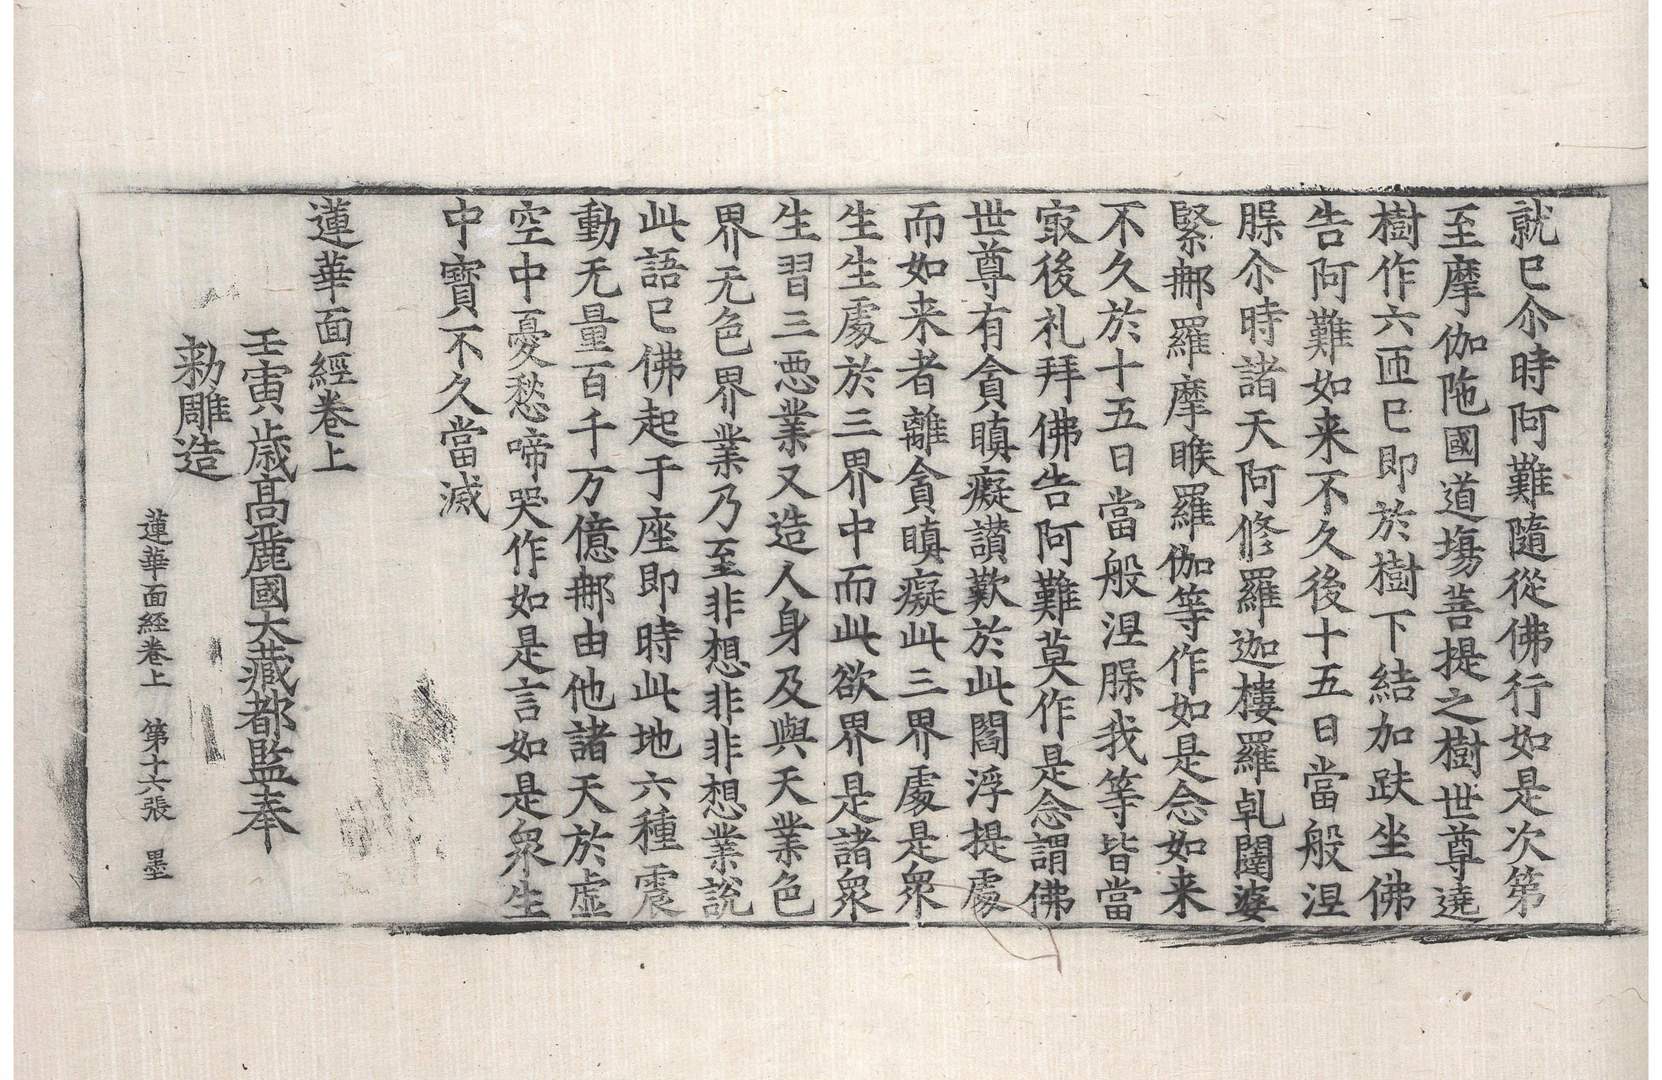 就已尒時阿難隨從佛行如是次第
至摩伽陁國道塲菩提之樹世尊遶
樹作六匝已即於樹下結加趺坐佛
告阿難如来不久後十五日當般涅
𦢊尒時諸天阿修羅迦樓羅乹闥婆
緊𨚗羅摩睺羅伽等作如是念如来
不久於十五日當般涅𦢊我等皆當
㝡後礼拜佛告阿難莫作是念謂佛
世尊有貪瞋癡讃歎於此閻浮提處
而如来者離貪瞋癡此三界處是衆
生生處於三界中而此欲界是諸衆
生習三悪業又造人身及與天業色
界无色界業乃至非想非非想業說
此語已佛起于座即時此地六種震
動无量百千万億𨚗由他諸天於虛
空中憂愁啼哭作如是言如是衆生
中寳不久當滅
蓮華面經卷上
壬寅歳髙麗國大藏都監奉
勑雕造
蓮華面經卷上 第十六張 墨